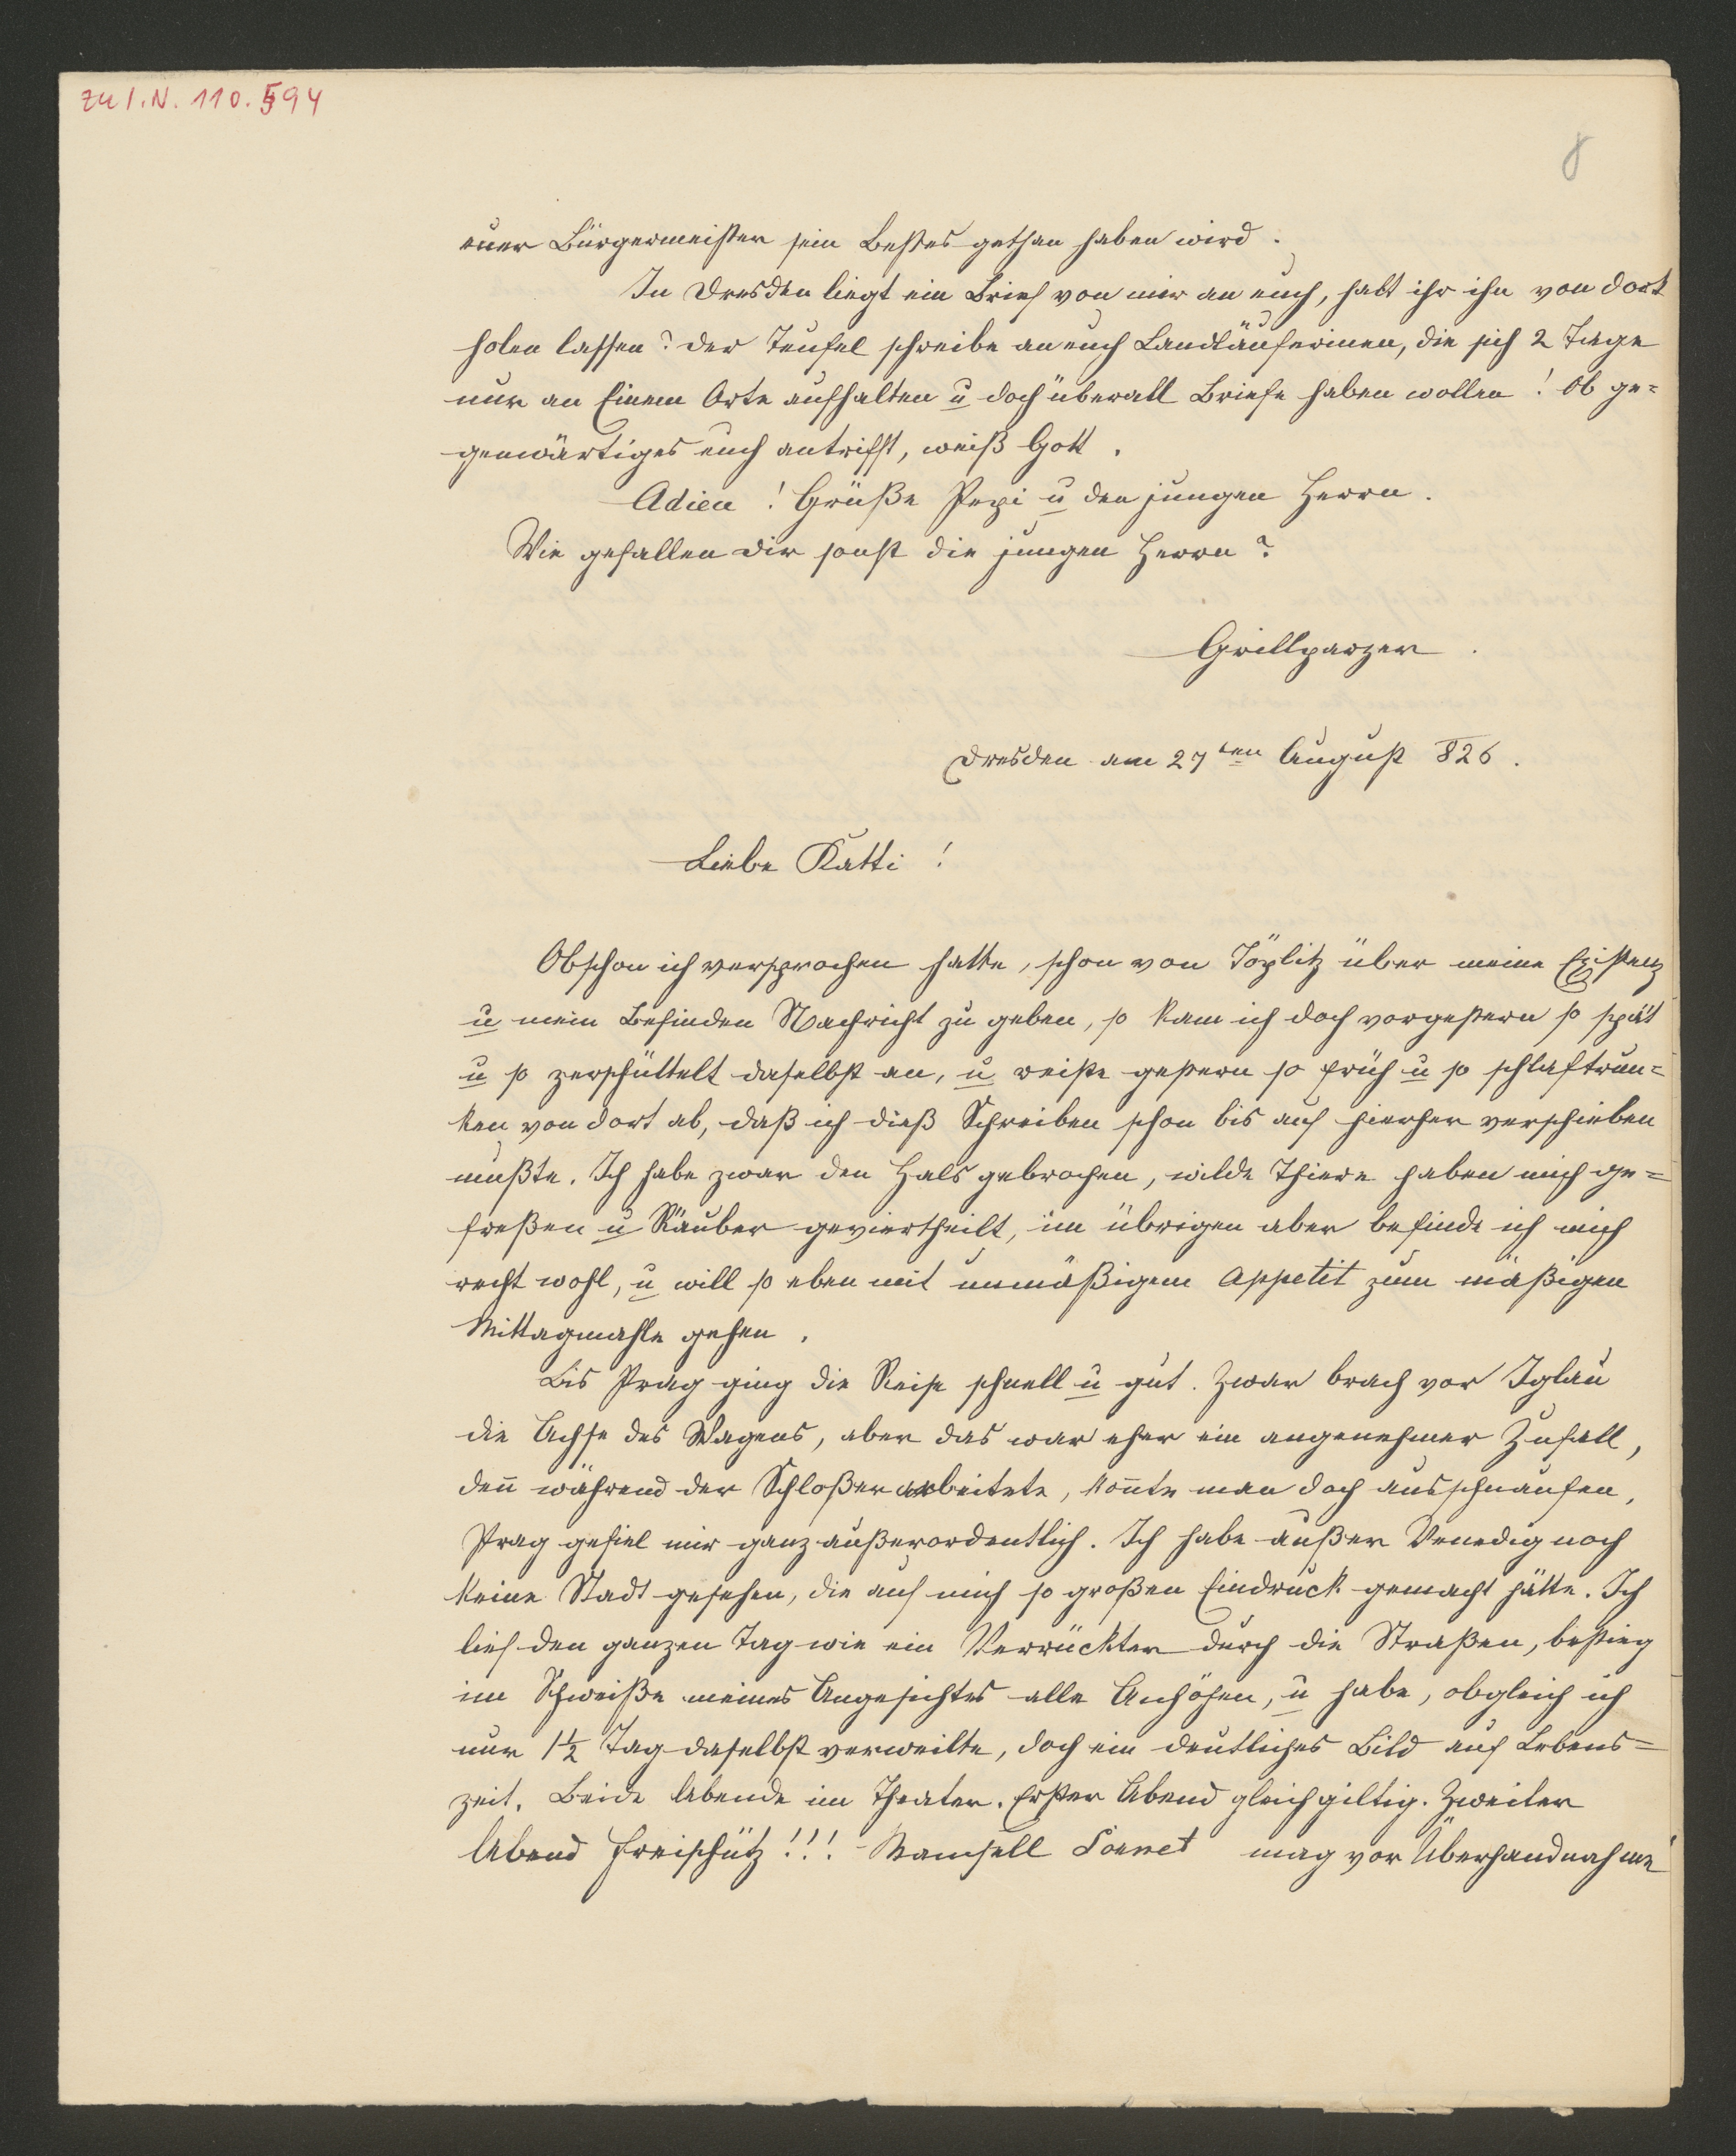 zu I.N. 110.594
8
euer Bürgermeister sein Bestes gethan haben wird.
In Dresden liegt ein Brief von mir an euch, habt ihr ihn von dort
holen lassen? Der Teufel schreibe an euch Landläuferinen, die sich 2 Tage
nur an Einem Orte aufhalten u doch überall Briefe haben wollen! Ob ge=
genwärtiges euch antrifft, weiß Gott.
Adieu! Grüße Pepi u den jungen Herrn.
Wie gefallen dir sonst die jungen Herrn?
Grillparzer.
Dresden am 27ten August 826.
Liebe Katti!
Obschon ich versprochen hatte, schon von Töplitz über meine Existenz
u mein Befinden Nachricht zu geben, so kam ich doch vorgestern so spät
u so zerschüttelt daselbst an, u reiste gestern so früh u so schlaftrun=
ken von dort ab, daß ich dieß Schreiben schon bis auf hierher verschieben
mußte. Ich habe zwar den Hals gebrochen, wilde Thiere haben mich ge=
freßen u Räuber geviertheilt, im übrigen aber befinde ich mich
recht wohl, u will so eben mit unmäßigem Appetit zum mäßigen
Mittagmahle gehen.
Bis Prag ging die Reise schnell u gut. Zwar brach vor Iglau
die Achse des Wagens, aber das war eher ein angenehmer Zufall,
den̄ während der Schloßer arbeitete, kon̄te man doch ausschnaufen,
Prag gefiel mir ganz außerordentlich. Ich habe außer Venedig noch
keine Stadt gesehen, die auf mich so großen Eindruck gemacht hätte. Ich
lief den ganzen Tag wie ein Verrückter durch die Straßen, bestieg
im Schweiße meines Angesichtes alle Anhöhen, u habe, obgleich ich
nur 1½ Tag daselbst verweilte, doch ein deutliches Bild auf Lebens=
zeit. Beide Abende im Theater. Erster Abend gleichgiltig. Zweiter
Abend Freischütz!!! Mamsell Comet mag vor Überhandnahme